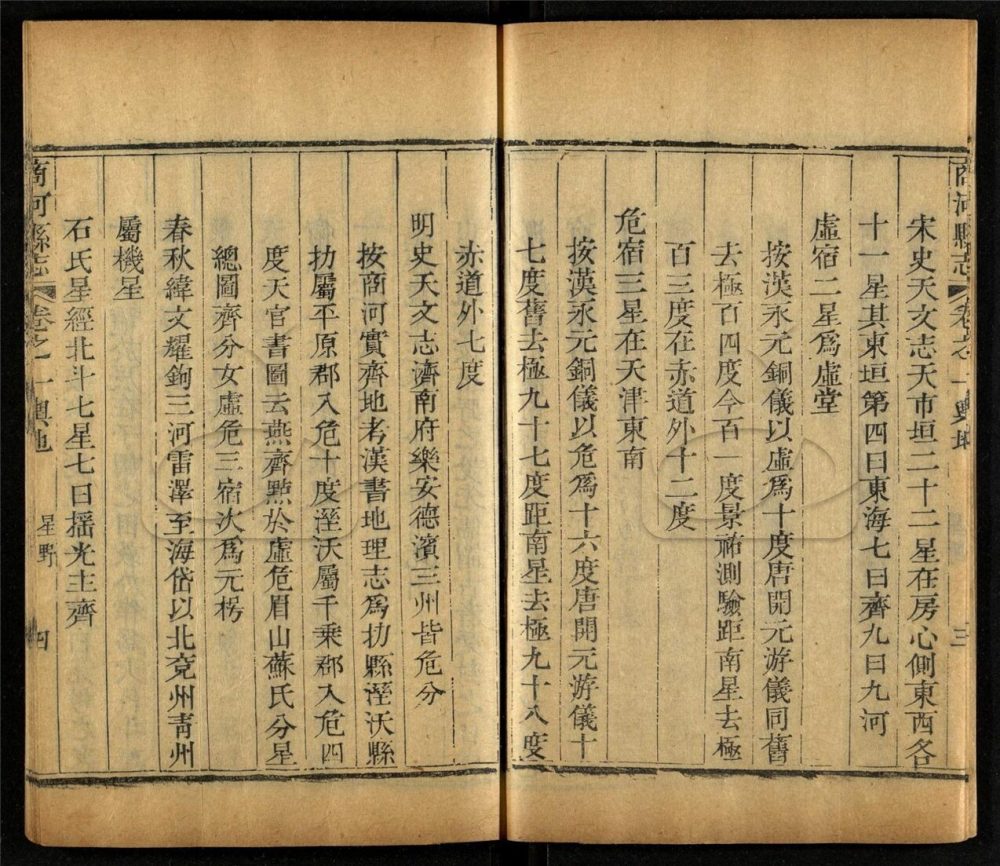 商河縣志 卷之一 輿地 三
宋史天文志天市垣二十二星在房心側東西各
十一星其東垣第四曰東海七曰齊九曰九河
虛宿二星爲虛堂
按漢永元銅儀以虛爲十度唐開元游儀同舊
去極百四度今百一度景祐測驗距南星去極
百三度在赤道外十二度
危宿三星在天津東南
按漢永元銅儀以危爲十六度唐開元游儀十
七度舊去極九十七度距南星去極九十八度
赤道外七度
明史天文志濟南府樂安德濱三州皆危分
按商河實齊地考漢書地理志爲朸縣溼沃縣
朸屬平原郡入危十度溼沃屬千乘郡入危四
度天官書圖云燕齊㸃於虛危眉山蘇氏分星
總圖齊分女虛危三宿次爲元枵
春秋緯文耀鉤三河雷澤至海岱以北兗州靑州
屬機星
石氏星經北斗七星七曰搖光主齊
商河縣志 卷之一 輿地 星野 四